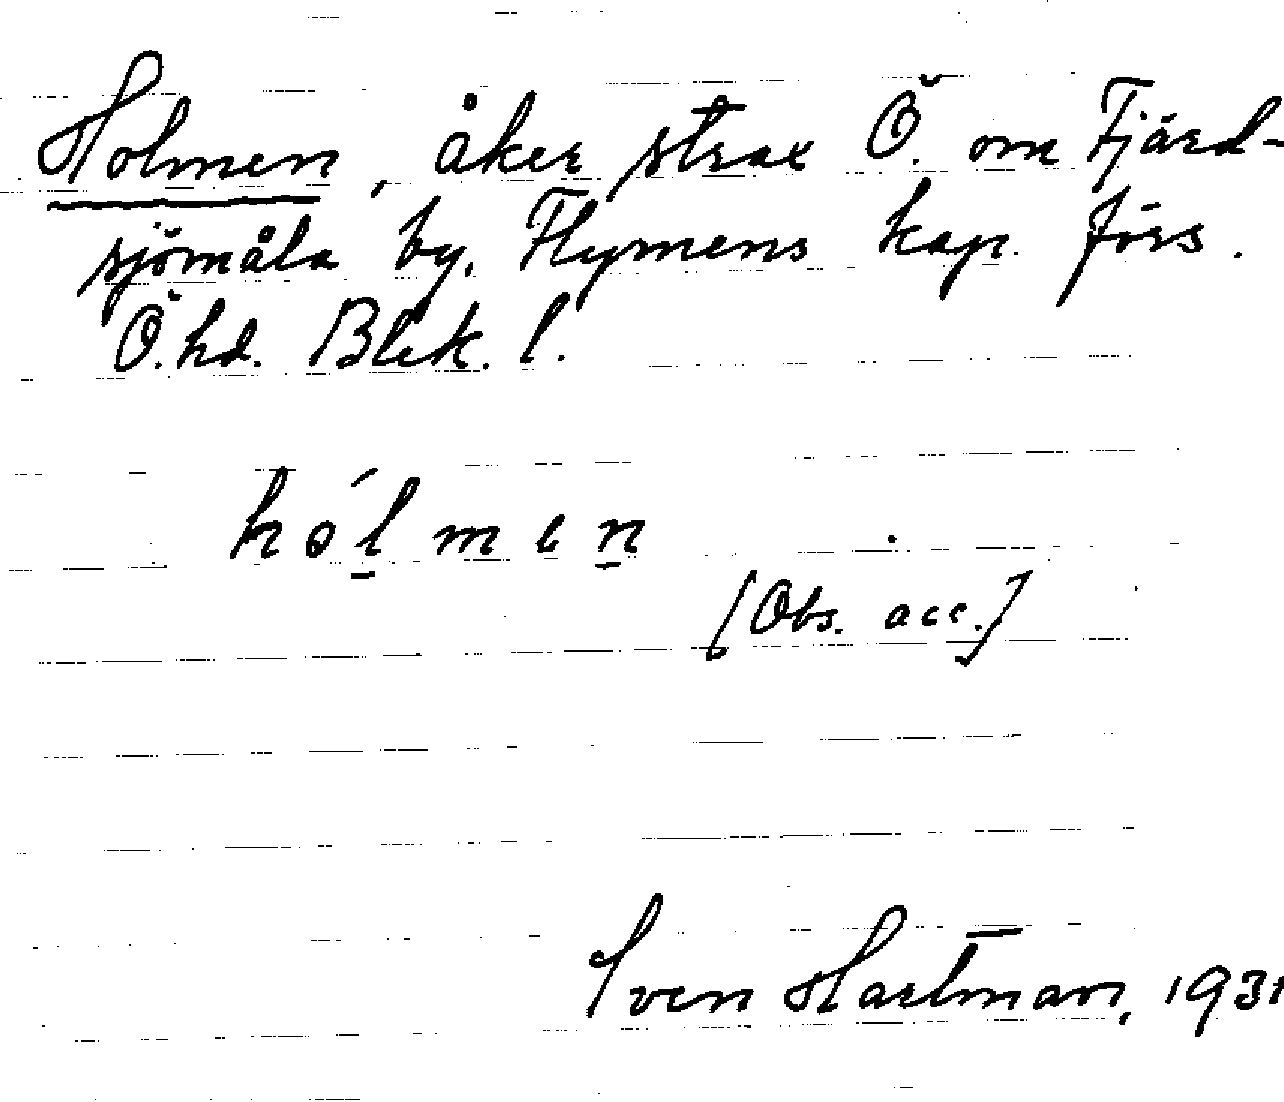 Holmen, åker strax Ö. om Fjärd-
sjömåla by. Flymens kap. förs.
Ö. hd. Blek. l.
hólmen
[Obs. acc.]
Sven Hartman, 1931